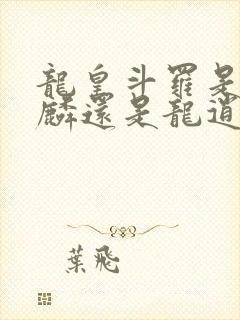 龍皇斗羅是
麟還是龍逍
葉飛